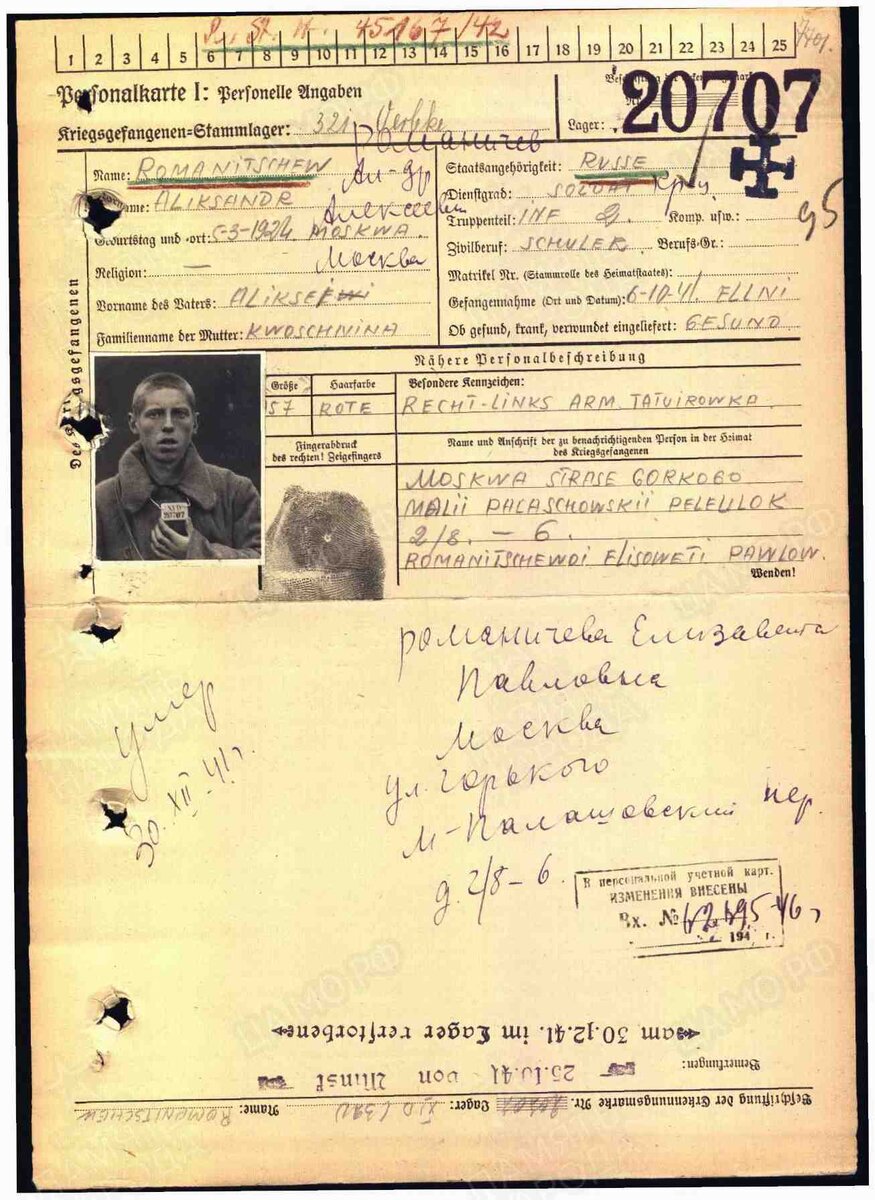 45167/42
7401.
1 2 3 4 5 6 7 8 9 10 11 12 13 14 15 16 17 18 19 20 21 22 23 24 25
Personalkarte I: Personelle Angaben
Kriegsgefangenen=Stammlager: 321
Lager:
20707
Романичев
Name: ROMANITSCHEW
Ал-др
ALIKSANDR
Алексеев
Geburtstag und =ort: 5-3-1924 MOSKWA.
Москва
Religion: —
Vorname des Vaters:
Familienname der Mutter: KWOSCHNINA
Staatsangehörigkeit: RUSSE
Dienstgrad: SOLDAT
Truppenteil: INF Komp. usw.:
95
Zivilberuf: SCHULER Berufs=Gr.:
Matrikel Nr. (Stammrolle des Heimatstaates):
Gefangennahme (Ort und Datum): 6-10-41. ELLNI
Ob gesund, krank, verwundet eingeliefert: GESUND
Des Kriegsgefangenen
Nähere Personalbeschreibung
Größe Haarfarbe Besondere Kennzeichen:
157 ROTE RECHT-LINKS ARM. TATUIROWKA.
Fingerabdruck
des rechten! Zeigefingers
Name und Anschrift der zu benachrichtigenden Person in der Heimat
des Kriegsgefangenen
MOSKWA STRASE GORKOGO
MALII PALASCHOWSKII PELEULOK
2/8. – 6.
ROMANITSCHEWOI ELISOWETI PAWLOW.
Wenden!
20707
Романичева Елизавета
Павловна
Москва
ул. Горького
М-Палашовский пер.
д. 2/8 – 6.
умер
30.XII-41г.
В персональной учетной карт.
ИЗМЕНЕНИЯ ВНЕСЕНЫ
Вх. №
194 г.
am 30.12.41. im Lager verstorben
Bemerkungen:
25.10.41 von Minsk
Beschriftung der Erkennungsmarke Nr. Lager: Name: ROMANITSCHEW